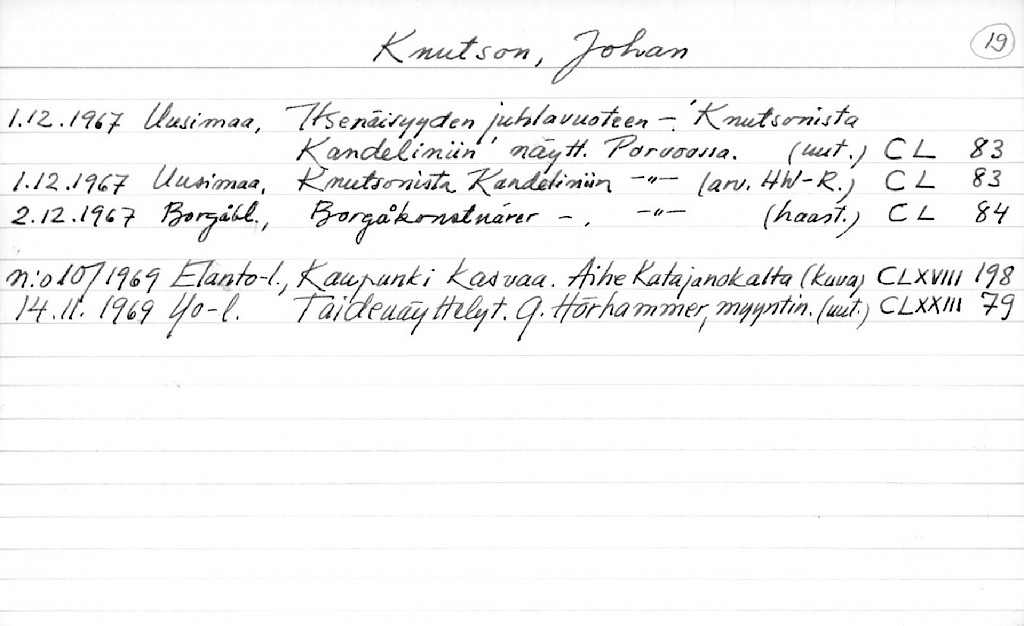 Knutson, Johan 19
1.12.1967 Uusimaa, Itsenäisyyden juhlavuoteen - 'Knutsonista
Kandeliniin' näytt. Porvoossa. (uut.) CL 83
1.12.1967 Uusimaa, Knutsonista Kandeliniin -"- (arv. HW-R.) CL 83
2.12.1967 Borgåbl., Borgåkonstnärer -, -"- (haast.) CL 84
n:o 10/1969 Elanto-l., Kaupunki kasvaa. Aihe Katajanokalta (kuva) CLXVIII 198
14.11.1969 Yo-l. Taidenäyttelyt. G. Hörhammer, myyntin. (uut.) CLXXIII 79